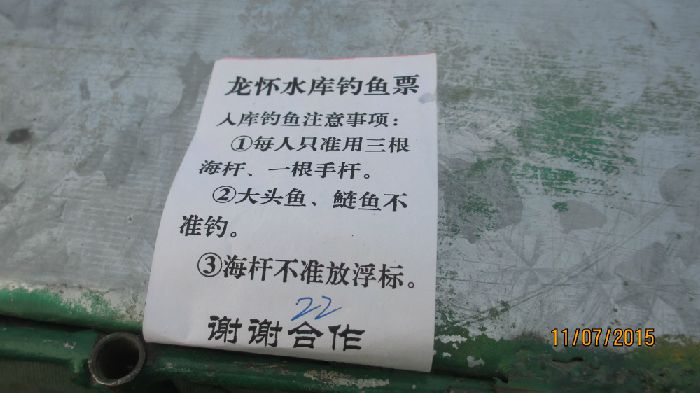 龙怀水库钓鱼票
入库钓鱼注意事项：
①每人只准用三根
海杆、一根手杆。
②大头鱼、鲢鱼不
准钓。
③海杆不准放浮标。
22
谢谢合作
11/07/2015